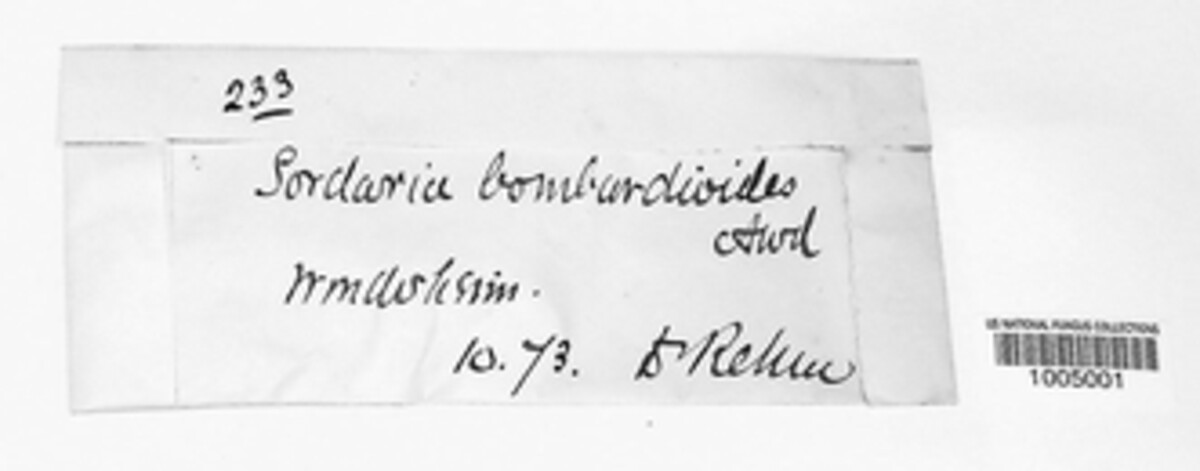 233
Sordaria bombardioides
Awd
Windsheim.
10. 73. Dr Rehm
US NATIONAL FUNGUS COLLECTIONS
1005001